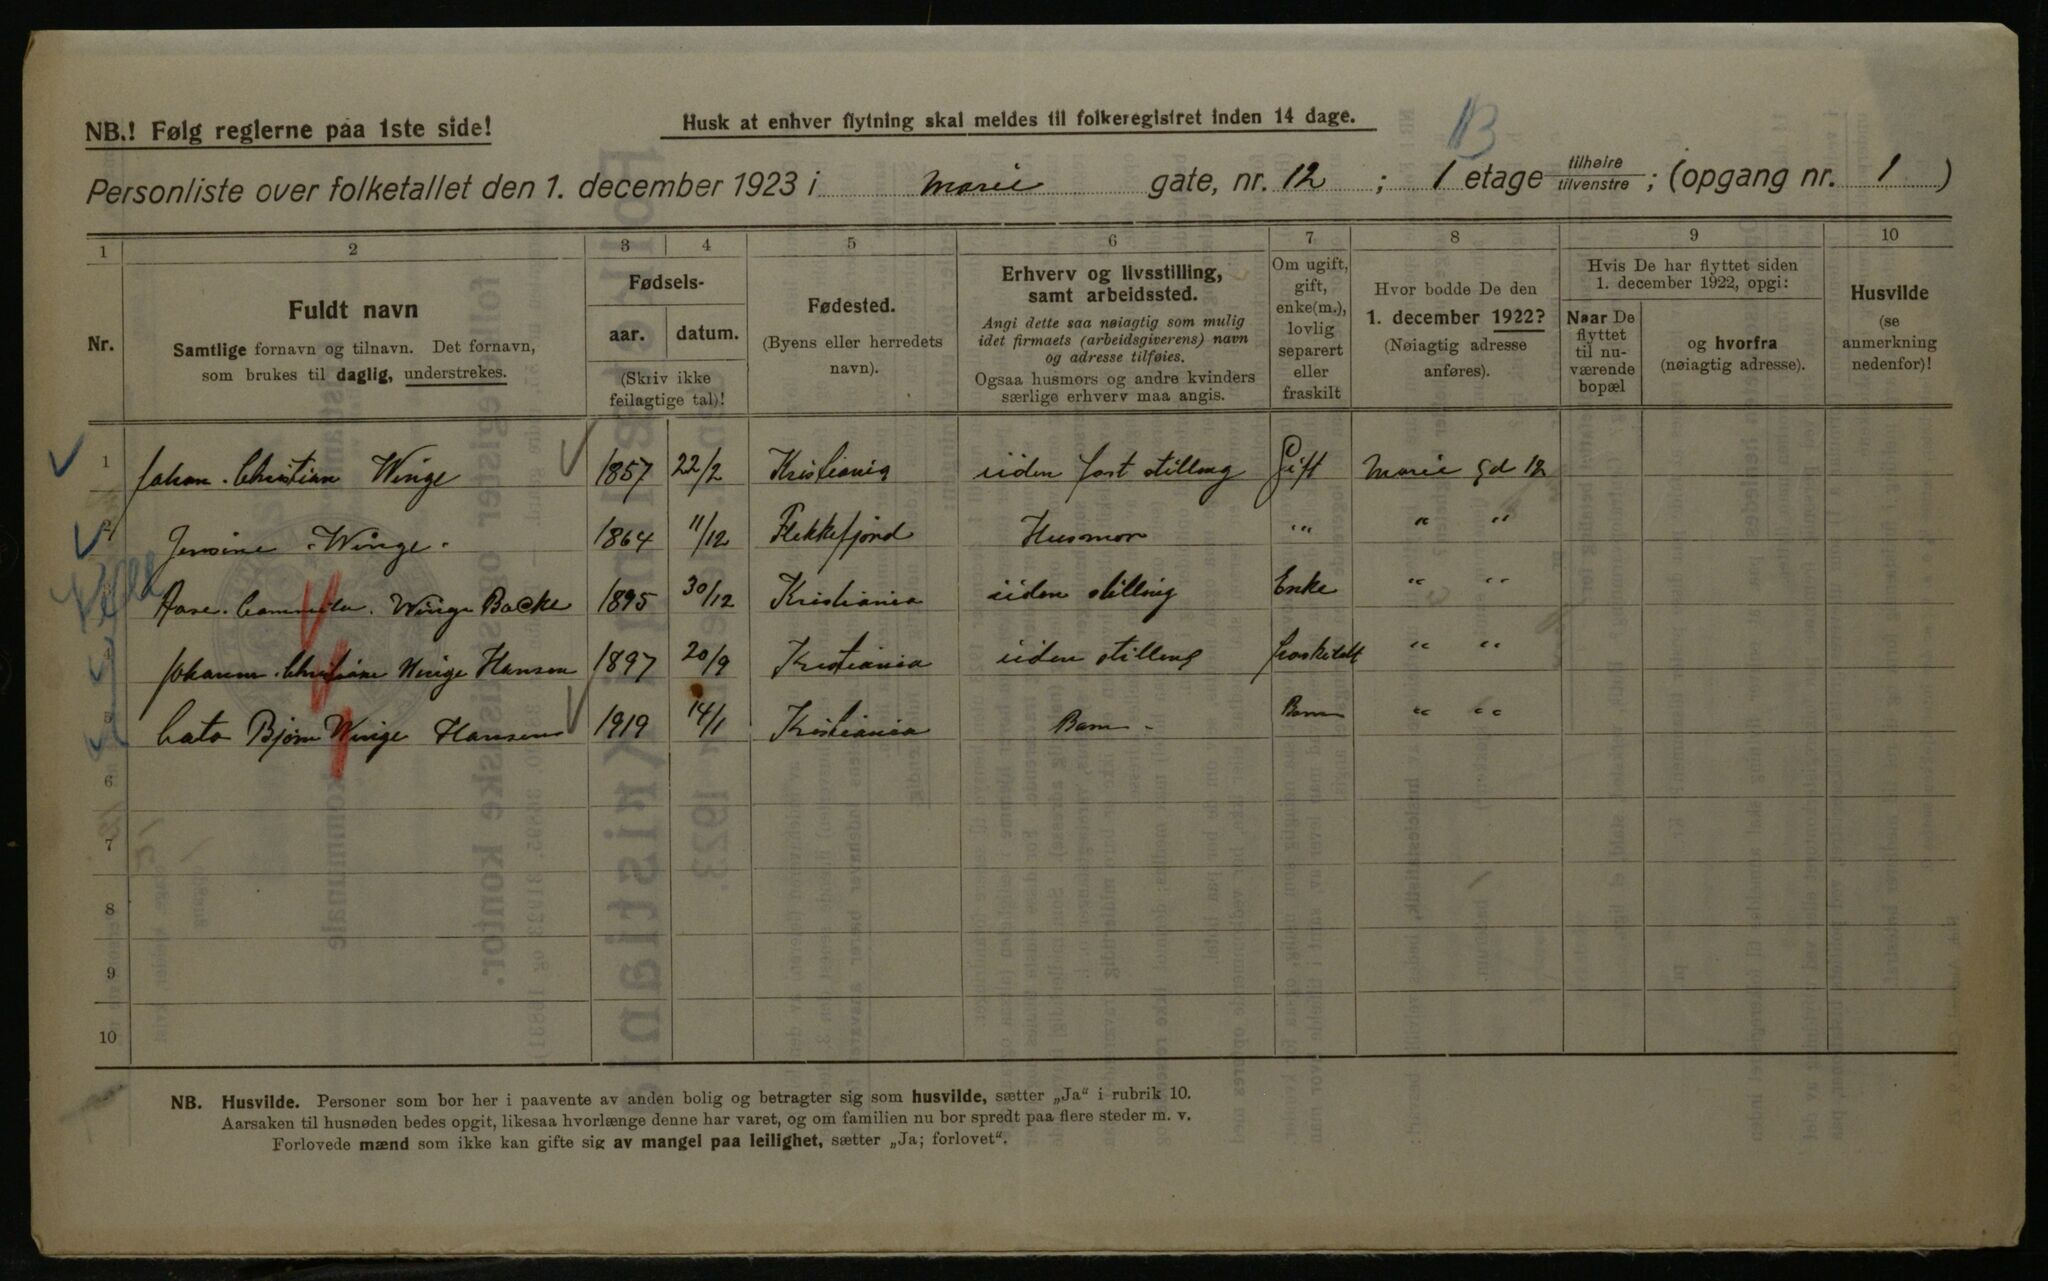 NB.! Følg reglerne paa 1ste side!
Husk at enhver flytning skal meldes til folkeregistret inden 14 dage.
B
Personliste over folketallet den 1. december 1923 i Marie gate, nr. 12 ; 1 etage tilhøire tilvenstre ; (opgang nr. 1 )
1 2 3 4 5 6 7 8 9 10
Nr.
Fuldt navn
Samtlige fornavn og tilnavn. Det fornavn,
som brukes til daglig, understrekes.
Fødsels-
aar. datum.
(Skriv ikke
feilagtige tal)!
Fødested.
(Byens eller herredets
navn).
Erhverv og livsstilling,
samt arbeidssted.
Angi dette saa nøiagtig som mulig
idet firmaets (arbeidsgiverens) navn
og adresse tilføies.
Ogsaa husmors og andre kvinders
særlige erhverv maa angis.
Om ugift,
gift,
enke(m.),
lovlig
separert
eller
fraskilt
Hvor bodde De den
1. december 1922?
(Nøiagtig adresse
anføres).
Hvis De har flyttet siden
1. december 1922, opgi:
Naar De
flyttet
til nu-
værende
bopæl
og hvorfra
(nøiagtig adresse).
Husvilde
(se
anmerkning
nedenfor)!
1 Johan Christian Winge 1857 22/2 Kristiania uden fast stilling Gift Marie gd 12
2 Jensine Winge 1864 11/12 Flekkefjord Husmor " " "
3 Aase Cammilla Winge Backe 1895 30/12 Kristiania uden stilling Enke " "
4 Johanne Christiane Winge Hansen 1897 20/9 Kristiania uden stilling fraskildt " "
5 Cato Bjørn Winge Hansen 1919 14/1 Kristiania Barn Barn " "
6
7
8
9
10
NB. Husvilde. Personer som bor her i paavente av anden bolig og betragter sig som husvilde, sætter „Ja“ i rubrik 10.
Aarsaken til husnøden bedes opgit, likesaa hvorlænge denne har varet, og om familien nu bor spredt paa flere steder m. v.
Forlovede mænd som ikke kan gifte sig av mangel paa leilighet, sætter „Ja; forlovet“.